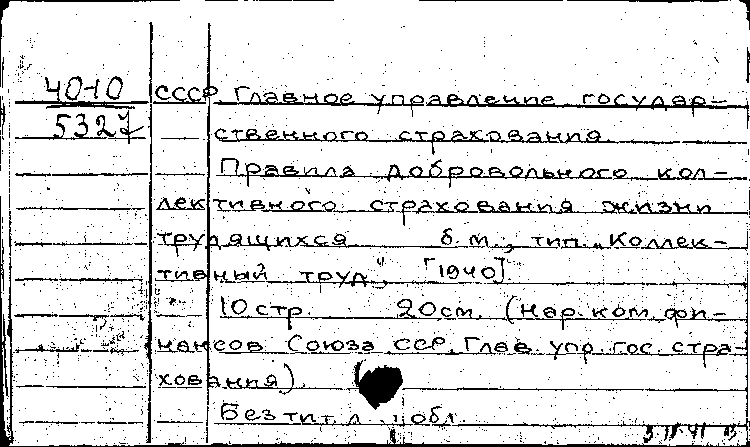 40-10
5327
СССР. Главное управление государ-
ственного страхования.
Правила добровольного кол-
лективного страхования жизни
трудящихся б.м., тип. „Коллек-
тивный труд", [1940].
10 стр. 20см. (Нар. ком. фи-
нансов Союза ССР. Глав. упр. гос. стра-
хования)
Без тит. л. и обл.